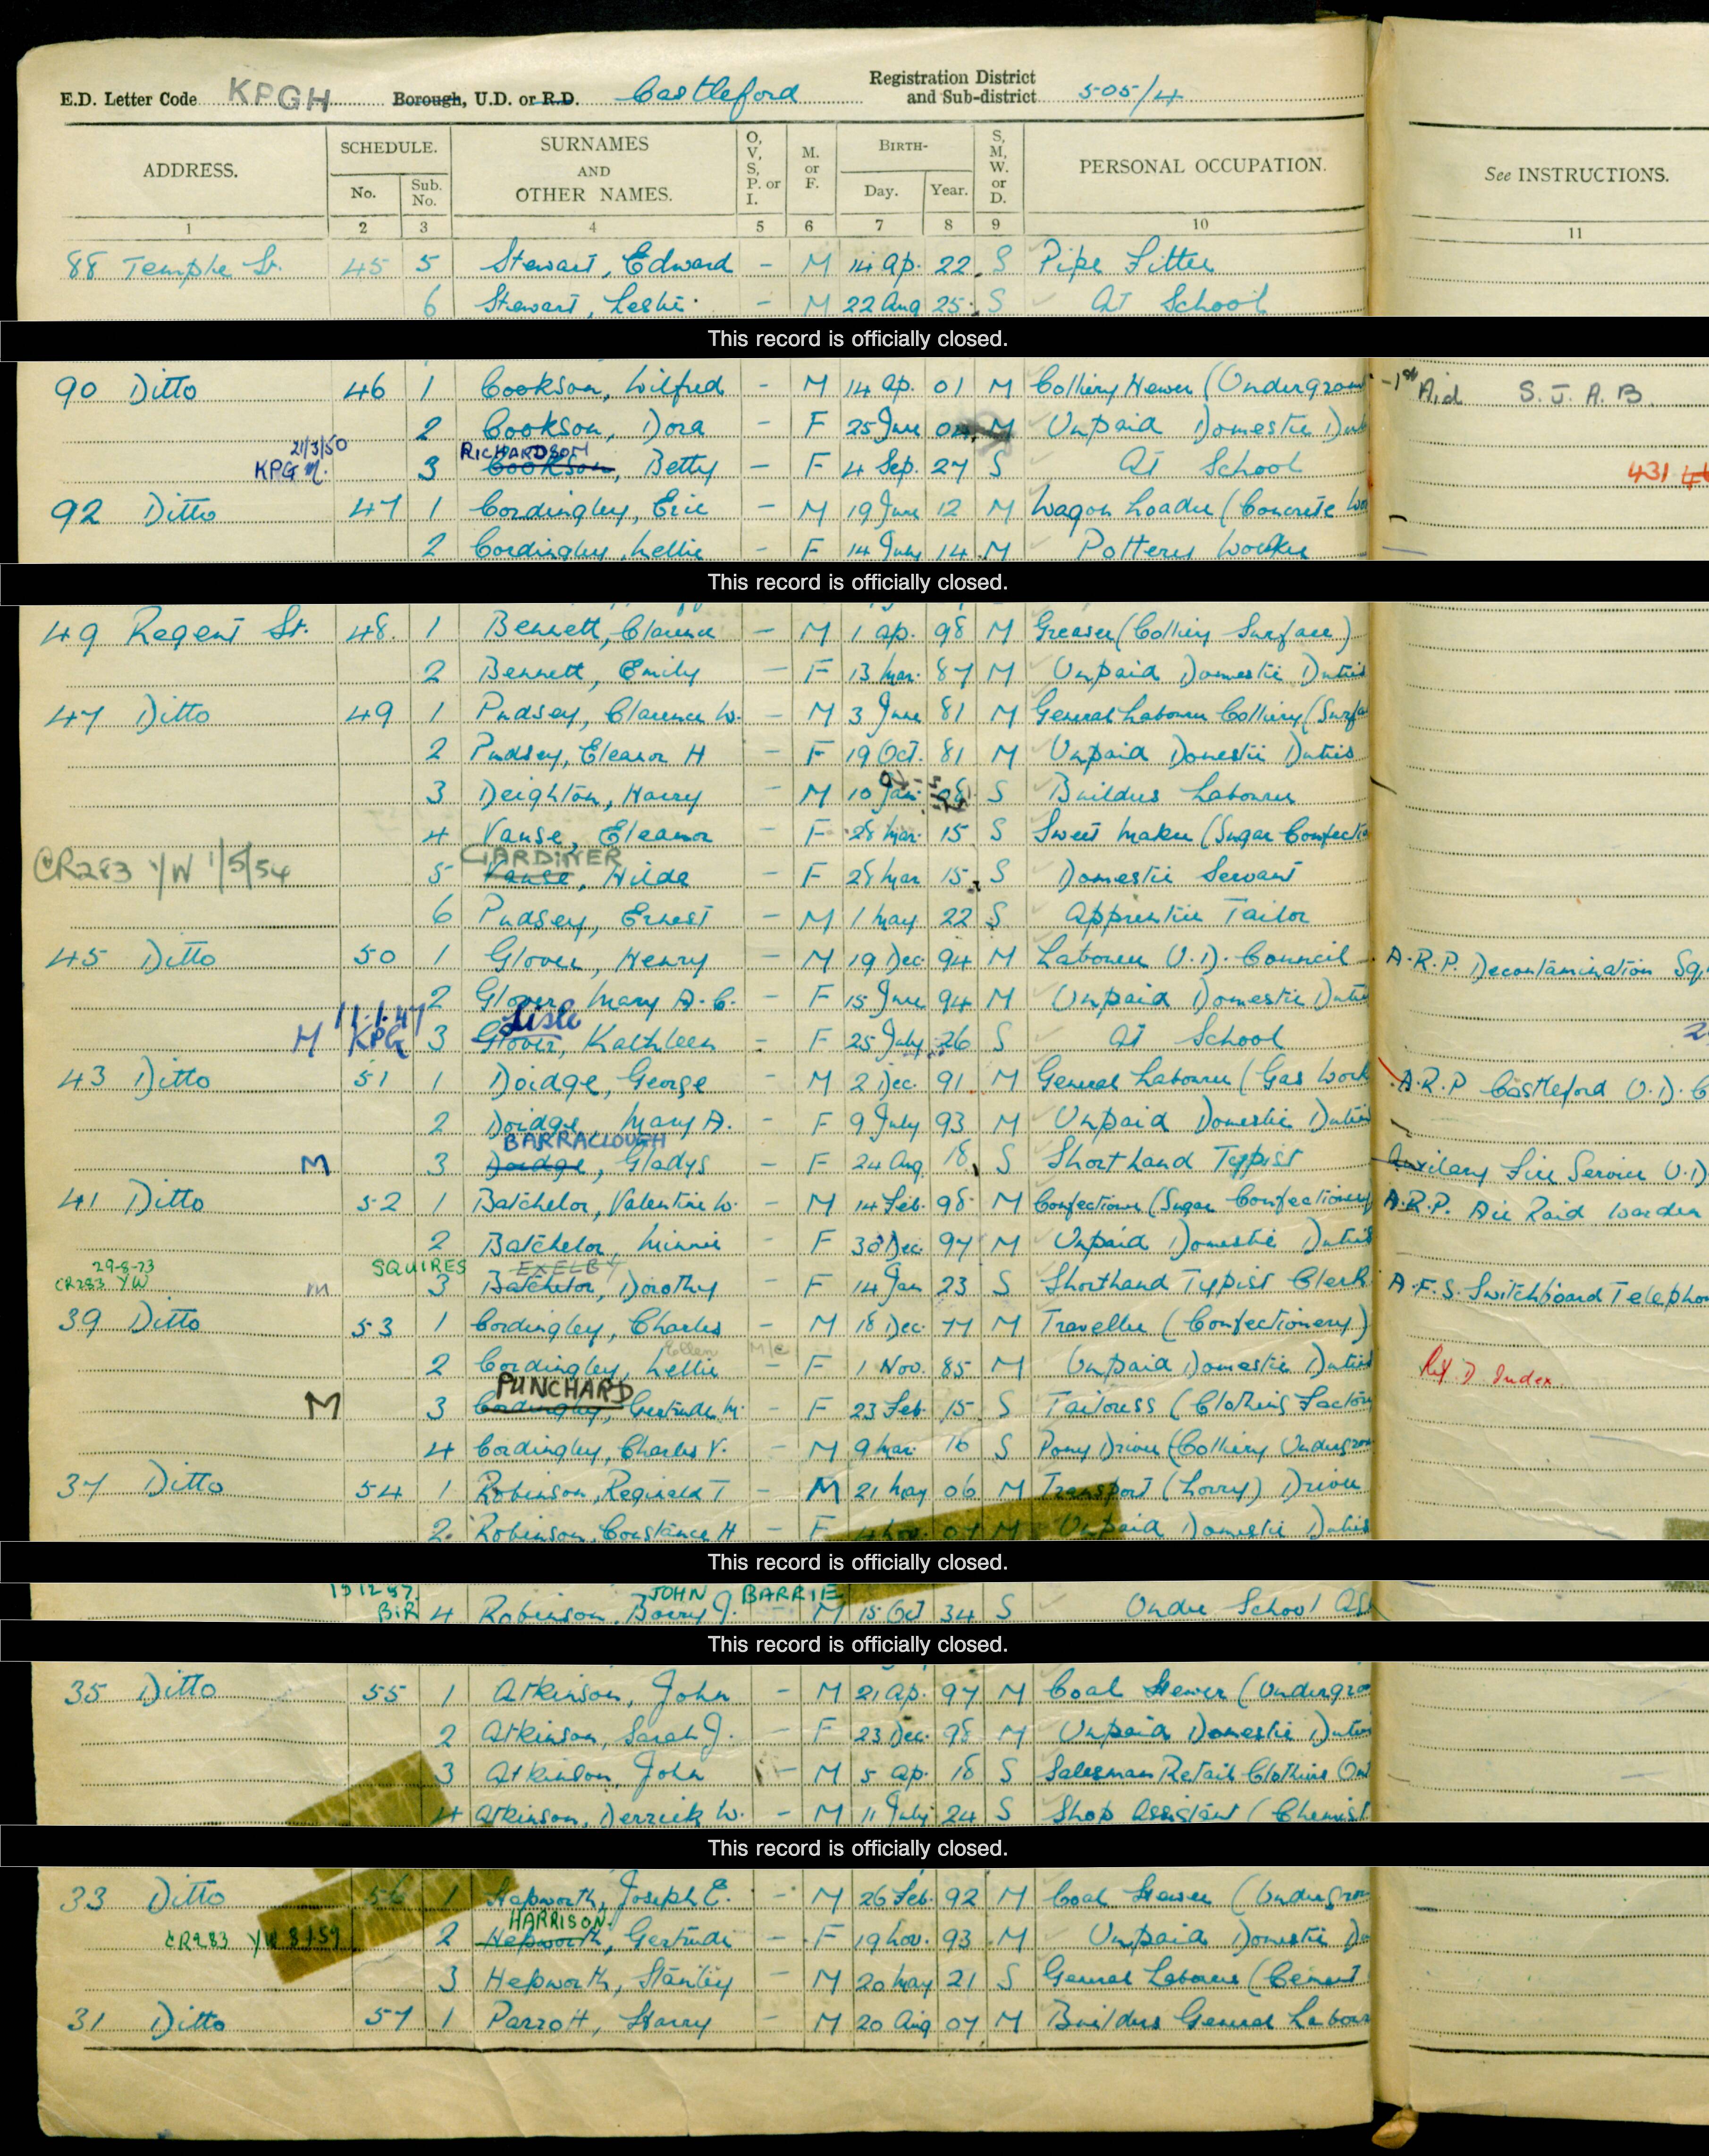 E.D. Letter Code KPGH Borough, U.D. or R.D. Castleford Registration District and Sub-district 505/4
ADDRESS. SCHEDULE. No. Sub. No. SURNAMES AND OTHER NAMES. O, V, S, P. or I. M. or F. BIRTH- Day. Year. S, M, W. or D. PERSONAL OCCUPATION. See INSTRUCTIONS.
1 2 3 4 5 6 7 8 9 10 11
88 Temple St. 45 5 Stewart, Edward - M 14 Ap. 22 S Pipe Fitter
6 Stewart, Leslie - M 22 Aug 25 S At School
This record is officially closed.
90 Ditto 46 1 Cookson, Wilfred - M 14 Ap. 01 M Colliery Hewer (Undergroun -1st Aid S. J. A. B.
2 Cookson, Dora - F 25 June 04 M Unpaid Domestic Dut
21/3/50 RICHARDSON
KPG M. 3 Cookson, Betty - F 4 Sep. 27 S At School 431
92 Ditto 47 1 Cordingley, Eric - M 19 June 12 M Wagon Loader (Concrete Wo
2 Cordingley, Nellie - F 14 July 14 M Pottery Worker
This record is officially closed.
49 Regent St. 48 1 Bennett, Clarence - M 1 Ap. 98 M Greaser (Colliery Surface)
2 Bennett, Emily - F 13 Mar. 87 M Unpaid Domestic Duties
47 Ditto 49 1 Pudsey, Clarence W. - M 3 June 81 M General Labourer Colliery (Surfa
2 Pudsey, Eleanor H - F 19 Oct. 81 M Unpaid Domestic Duties
3 Deighton, Harry - M 10 Jan 08 S Builders Labourer
4 Vause, Eleanor - F 28 Mar. 15 S Sweet Maker (Sugar Confectio
GARDINER
CR283 YW 1/5/54 5 Vause, Hilda - F 28 Mar 15 S Domestic Servant
6 Pudsey, Ernest - M 1 May 22 S Apprentice Tailor
45 Ditto 50 1 Glover, Henry - M 19 Dec 94 M Labourer U.D. Council A.R.P. Decontamination Sq.
2 Glover, Mary A. C. - F 15 June 94 M Unpaid Domestic Dutie
11.1.47 Lisle
M KPG 3 Glover, Kathleen - F 25 July 26 S At School
43 Ditto 51 1 Doidge, George - M 2 Dec. 91 M General Labourer (Gas Work A.R.P Castleford U.D. C
2 Doidge, Mary A. - F 9 July 93 M Unpaid Domestic Duties
BARRACLOUGH
M 3 Doidge, Gladys - F 24 Aug. 18 S Shorthand Typist Auxilary Fire Service U.D
41 Ditto 52 1 Batchelor, Valentine W. - M 14 Feb. 98 M Confectioner (Sugar Confectionery A.R.P. Air Raid Warden
2 Batchelor, Minnie - F 30 Dec. 97 M Unpaid Domestic Duties
29-8-73 SQUIRES EXELBY
CR283 YW m 3 Batchelor, Dorothy - F 14 Jan 23 S Shorthand Typist Clerk A.F.S. Switchboard Telepho
39 Ditto 53 1 Cordingley, Charles - M 18 Dec 77 M Traveller (Confectionery)
Ellen M/c
2 Cordingley, Nellie - F 1 Nov. 85 M Unpaid Domestic Duties Index
PUNCHARD
M 3 Cordingley, Gertrude M. - F 23 Feb. 15 S Tailoress (Clothing Factory
4 Cordingley, Charles V. - M 9 Mar. 16 S Pony Driver (Colliery Undergroun
37 Ditto 54 1 Robinson, Reginald T - M 21 May 06 M Transport (Lorry) Driver
2 Robinson, Constance H - F 4 Nov. 07 M Unpaid Domestic Duties
This record is officially closed.
JOHN BARRIE
BIR 4 Robinson, Barry J. - M 15 Oct 34 S Under School Ag
This record is officially closed.
35 Ditto 55 1 Atkinson, John - M 21 Ap. 97 M Coal Hewer (Undergro
2 Atkinson, Sarah J. - F 23 Dec. 98 M Unpaid Domestic Duties
3 Atkinson, John - M 5 Ap. 18 S Salesman Retail Clothing Out
4 Atkinson, Derrick W. - M 11 July 24 S Shop Assistant (Chemist
This record is officially closed.
33 Ditto 56 1 Hepworth, Joseph E. - M 26 Feb. 92 M Coal Hewer (Undergrou
HARRISON.
CR283 YW 2 Hepworth, Gertrude - F 19 Nov. 93 M Unpaid Domestic Du
3 Hepworth, Stanley - M 20 May 21 S General Labourer (Cement
31 Ditto 57 1 Parrott, Harry - M 20 Aug 07 M Builders General Labour